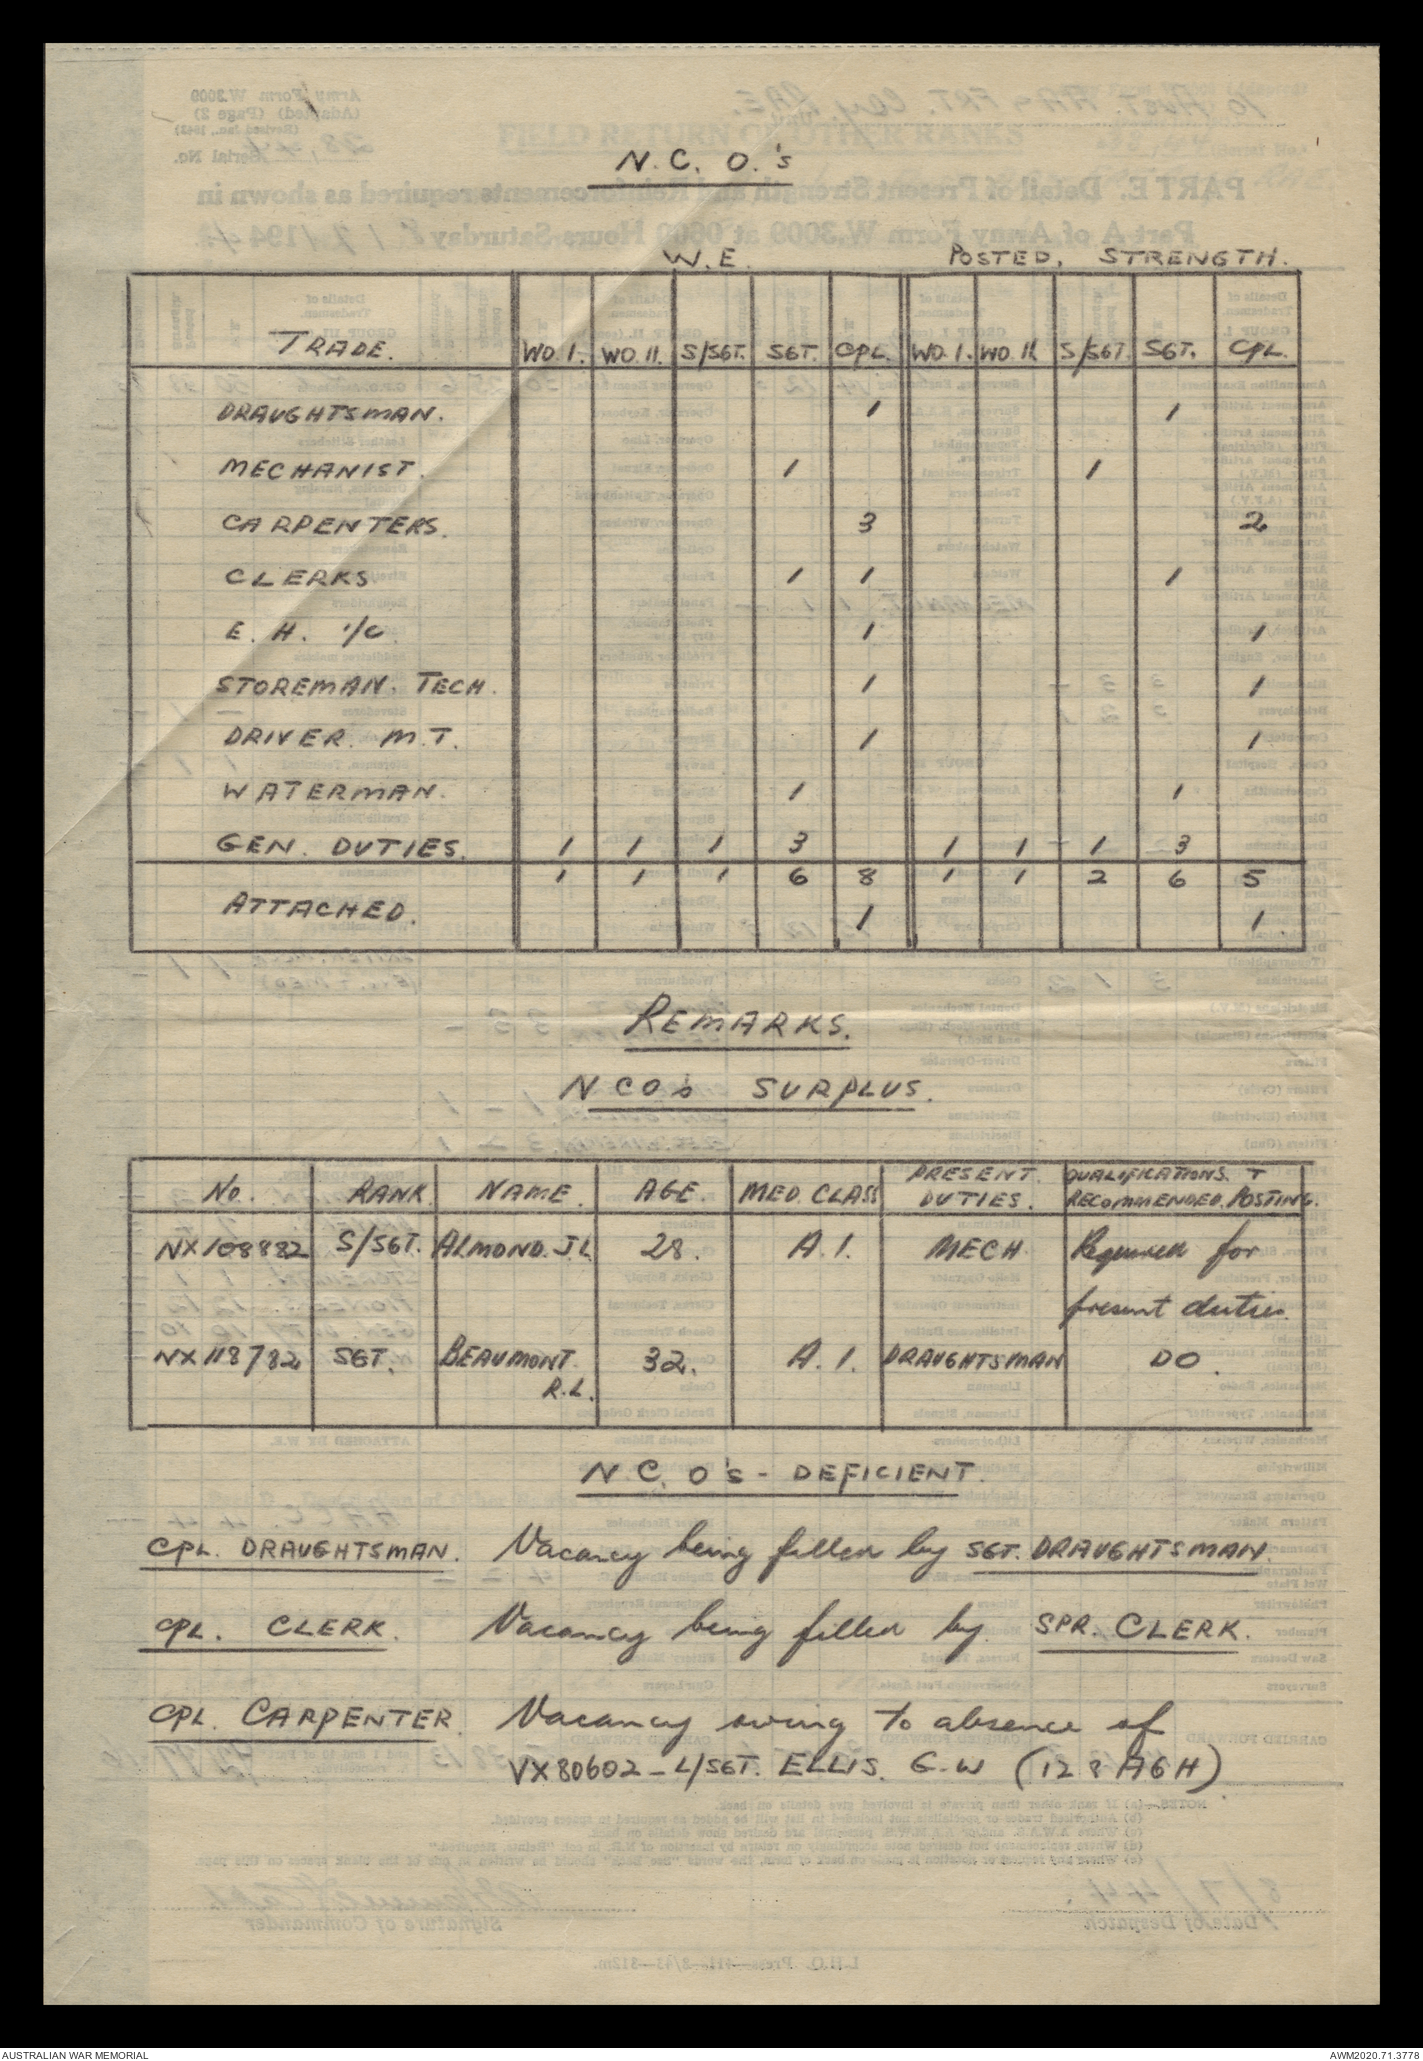 N.C.O.'s
W.E. POSTED. STRENGTH.
TRADE. WO.I. WO.II. S/SGT. SGT. CPL. WO.I. WO.II. S/SGT. SGT. CPL.
DRAUGHTSMAN. 1 1
MECHANIST. 1 1
CARPENTERS. 3 2
CLERKS 1 1 1
E. H. I/C. 1 1
STOREMAN. TECH. 1 1
DRIVER. M.T. 1 1
WATERMAN. 1 1
GEN. DUTIES. 1 1 1 3 1 1 1 3
1 1 1 6 8 1 1 2 6 5
ATTACHED. 1 1
REMARKS.
NCO's SURPLUS.
No. RANK NAME. AGE. MED. CLASS PRESENT DUTIES. QUALIFICATIONS. + RECOMMENDED. POSTING.
NX108882 S/SGT. ALMOND. J.L. 28. A.1. MECH Required for
present duties.
NX118782 SGT. BEAUMONT. 32. A.1. DRAUGHTSMAN DO.
R.L.
N.C.O's - DEFICIENT.
CPL. DRAUGHTSMAN. Vacancy being filled by SGT. DRAUGHTSMAN.
CPL. CLERK. Vacancy being filled by SPR. CLERK.
CPL. CARPENTER. Vacancy owing to absence of
VX80602 - L/SGT. ELLIS. G.W (128 AGH).
AUSTRALIAN WAR MEMORIAL AWM2020.71.3778